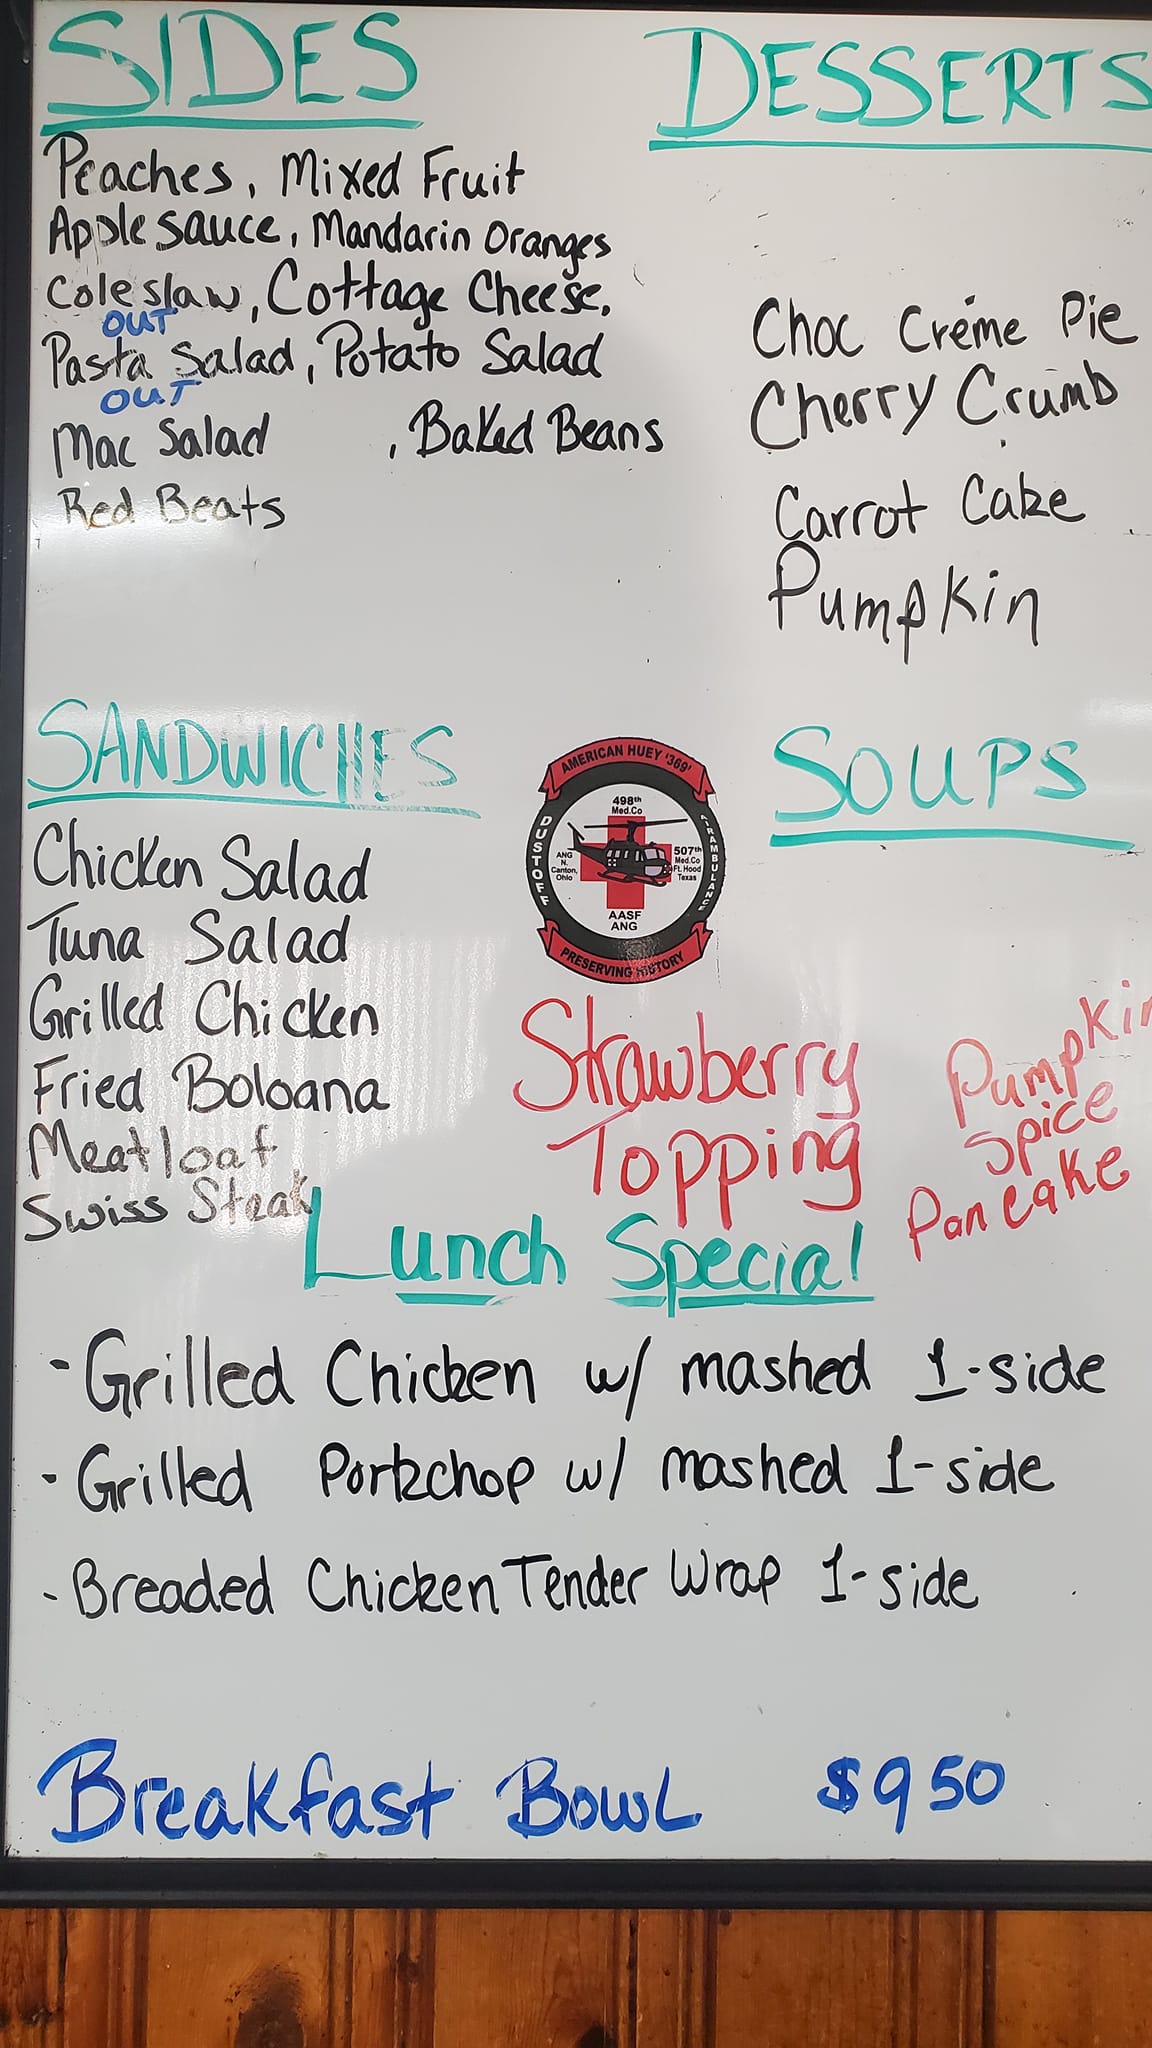 SIDES
Peaches, Mixed Fruit
Applesauce, Mandarin Oranges
Coleslaw, Cottage Cheese,
OUT
Pasta Salad, Potato Salad
OUT
Mac Salad , Baked Beans
Red Beats
DESSERTS
Choc Créme Pie
Cherry Crumb
Carrot Cake
Pumpkin
SANDWICHES
Chicken Salad
Tuna Salad
Grilled Chicken
Fried Boloana
Meatloaf
Swiss Steak
AMERICAN HUEY '369'
DUSTOFF
AIRAMBULANCE
498th
Med.Co
ANG
N.
Canton,
Ohio
507th
Med.Co
Ft. Hood
Texas
AASF
ANG
PRESERVING HISTORY
SOUPS
Strawberry
Topping
Pumpkin
Spice
Pancake
Lunch Special
- Grilled Chicken w/ mashed 1-side
- Grilled Porkchop w/ mashed 1-side
- Breaded Chicken Tender Wrap 1-side
Breakfast Bowl $950